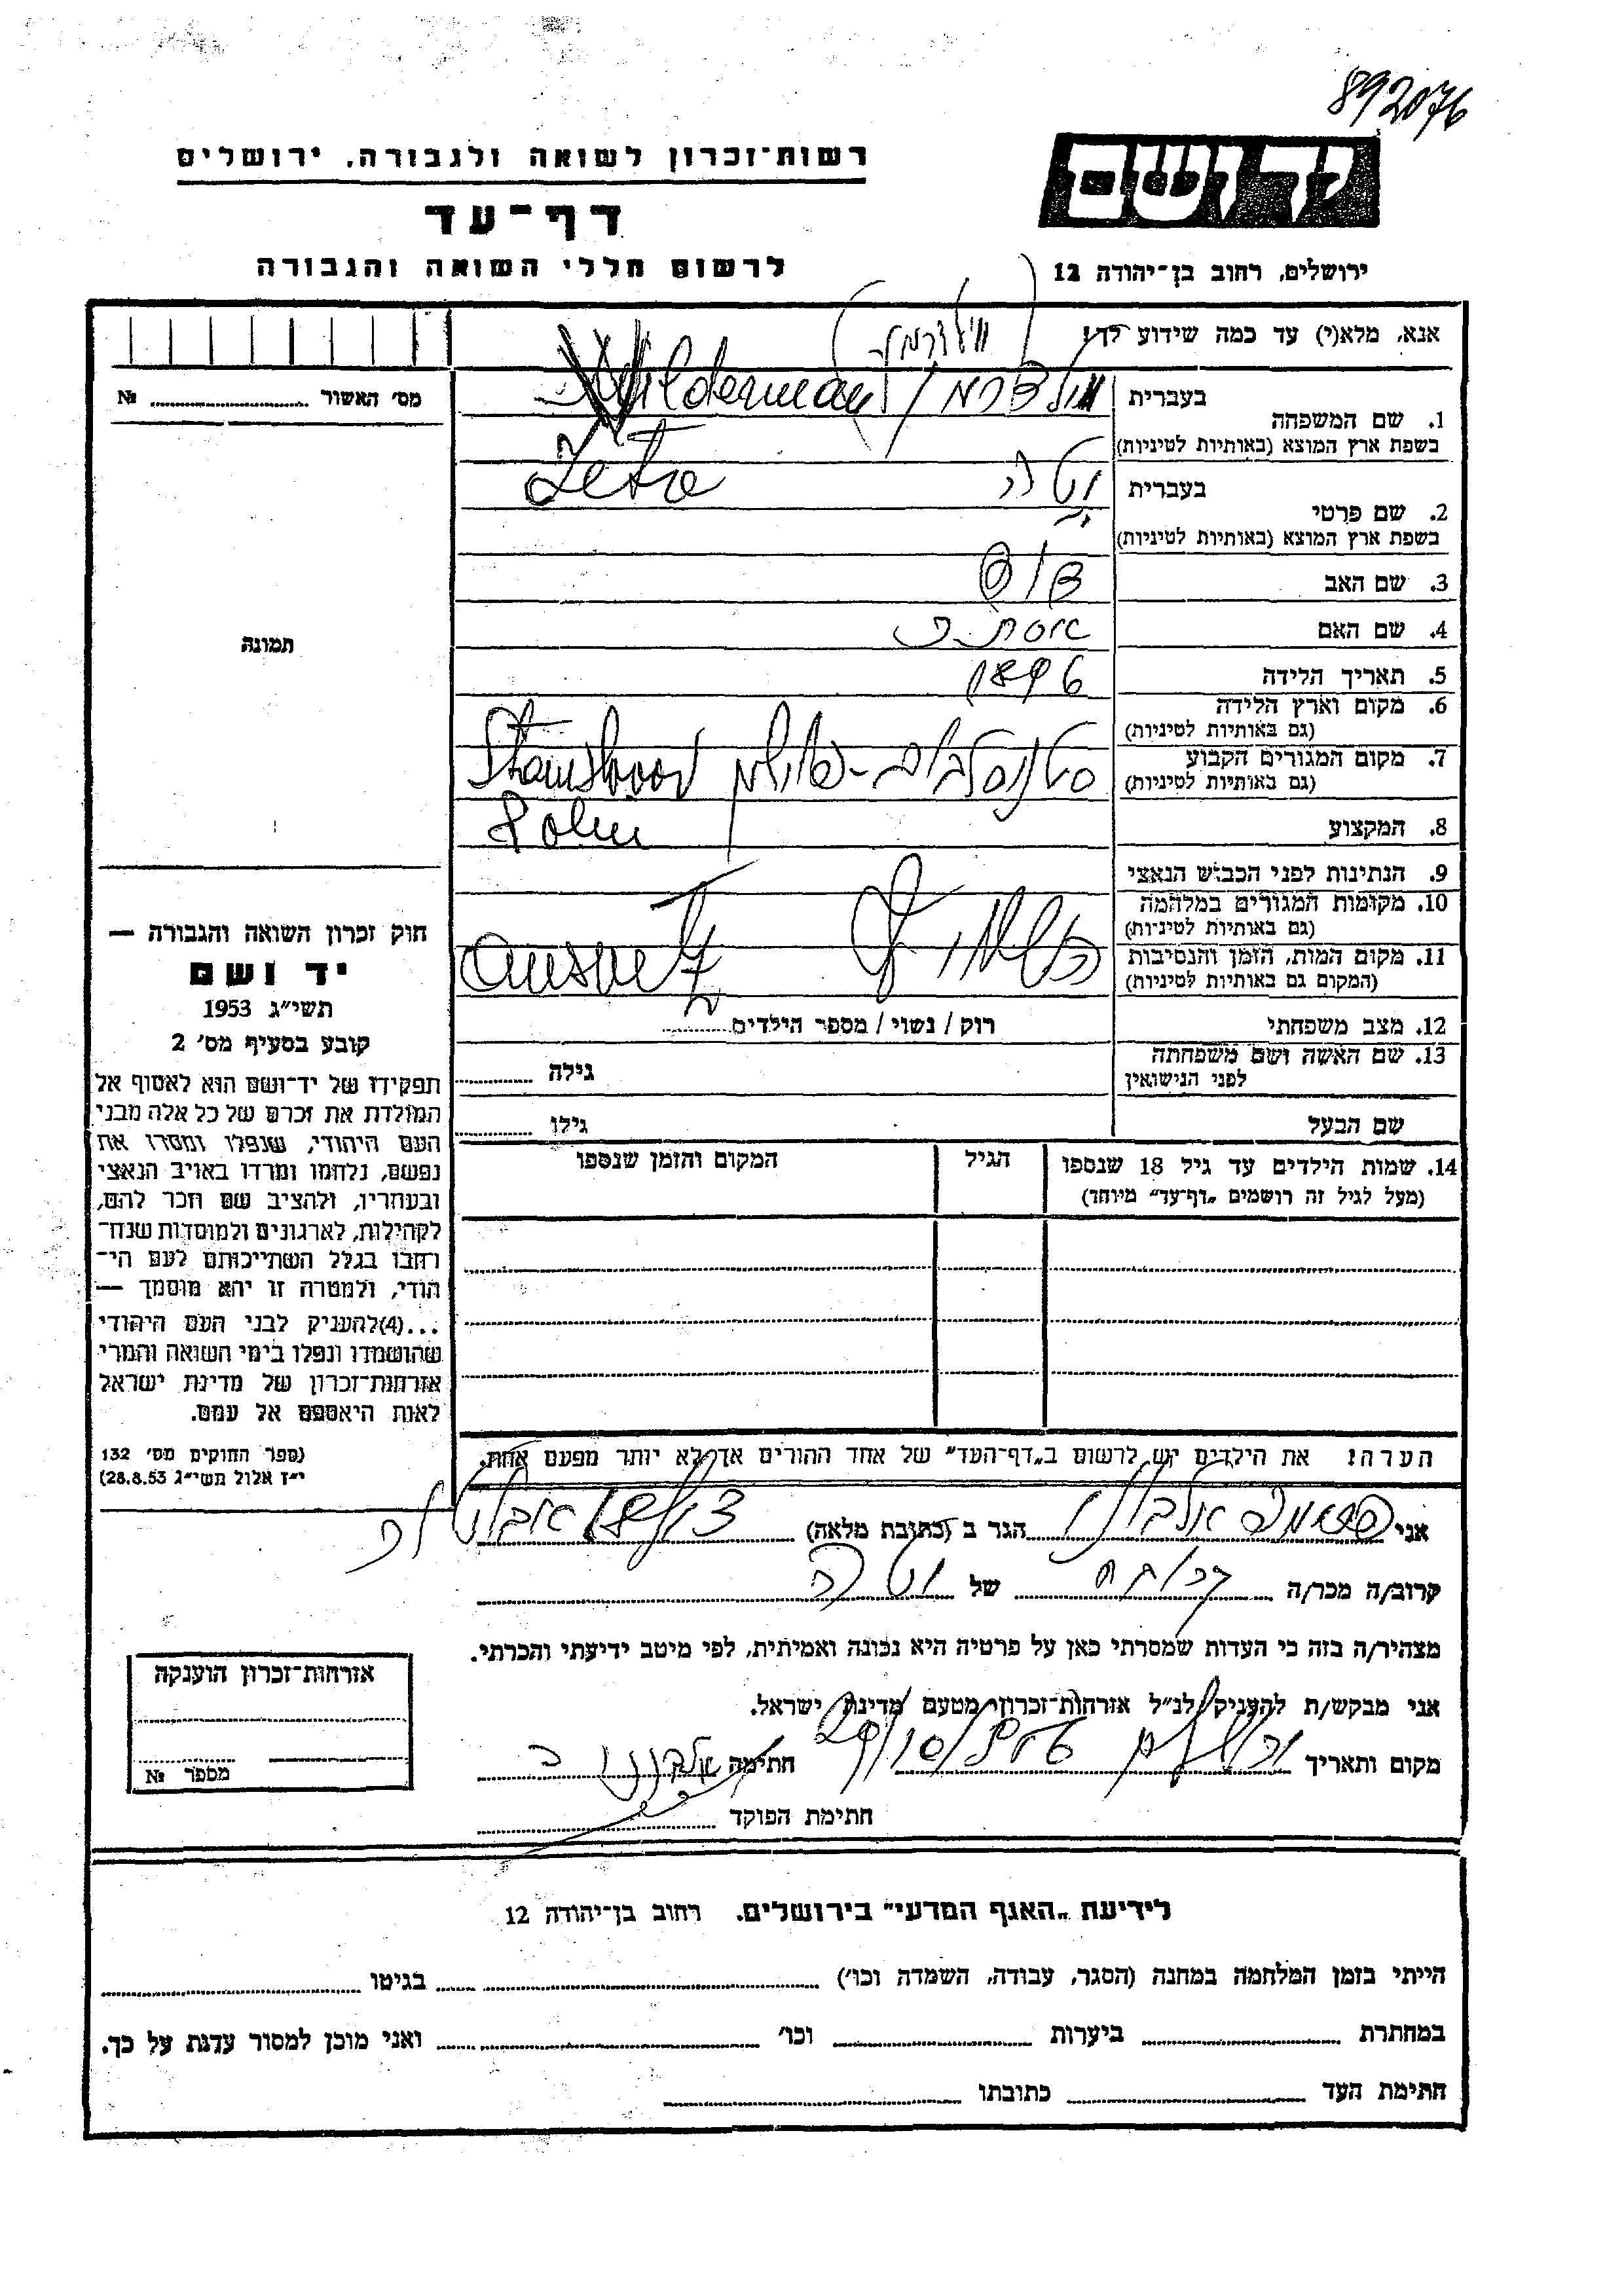 892076
יד ושם
רשות־זכרון לשואה ולגבורה, ירושלים
דף־עד
לרשום חללי השואה והגבורה
ירושלים, רחוב בן־יהודה 12
אנא, מלא(י) עד כמה שידוע לך!
מס׳ האשור № 
1. שם המשפחה
בעברית
Wilderman
בשפת ארץ המוצא (באותיות לטיניות)
2. שם פרטי
בעברית
יטה
Jeta
בשפת ארץ המוצא (באותיות לטיניות)
3. שם האב
4. שם האם
5. תאריך הלידה 1896
6. מקום וארץ הלידה
(גם באותיות לטיניות)
7. מקום המגורים הקבוע
(גם באותיות לטיניות)
סטניסלבוב - פולין
Polin
8. המקצוע
9. הנתינות לפני הכבוש הנאצי
10. מקומות המגורים במלחמה
(גם באותיות לטיניות)
11. מקום המות, הזמן והנסיבות
(המקום גם באותיות לטיניות)
12. מצב משפחתי רוק / נשוי / מספר הילדים
13. שם האשה ושם משפחתה
לפני הנישואין
גילה
שם הבעל גילו
14. שמות הילדים עד גיל 18 שנספו
(מעל לגיל זה רושמים „דף־עד” מיוחד)
הגיל
המקום והזמן שנספו
הערה! את הילדים יש לרשום ב„דף־העד” של אחד ההורים אך לא יותר מפעם אחת.
תמונה
חוק זכרון השואה והגבורה —
יד ושם
תשי״ג 1953
קובע בסעיף מס׳ 2
תפקידו של יד־ושם הוא לאסוף אל
המולדת את זכרם של כל אלה מבני
העם היהודי, שנפלו ומסרו את
נפשם, נלחמו ומרדו באויב הנאצי
ובעוזריו, ולהציב שם וזכר להם,
לקהילות, לארגונים ולמוסדות שנח־
רבו בגלל השתייכותם לעם הי־
הודי, ולמטרה זו יהא מוסמך —
...(4)להעניק לבני העם היהודי
שהושמדו ונפלו בימי השואה והמרי
אזרחות־זכרון של מדינת ישראל
לאות היאספם אל עמם.
(ספר החוקים מס׳ 132
י״ז אלול תשי״ג 28.8.53)
אני הגר ב (כתובת מלאה)
קרוב/ה מכר/ה של יטה
מצהיר/ה בזה כי העדות שמסרתי כאן על פרטיה היא נכונה ואמיתית, לפי מיטב ידיעתי והכרתי.
אני מבקש/ת להעניק לנ״ל אזרחות־זכרון מטעם מדינת ישראל.
מקום ותאריך ירושלים חתימה
חתימת הפוקד
אזרחות־זכרון הוענקה
מספר №
לידיעת „האגף המדעי” בירושלים. רחוב בן־יהודה 12
הייתי בזמן המלחמה במחנה (הסגר, עבודה, השמדה וכו׳) בגיטו
במחתרת ביערות וכו׳ ואני מוכן למסור עדות על כך.
חתימת העד כתובתו